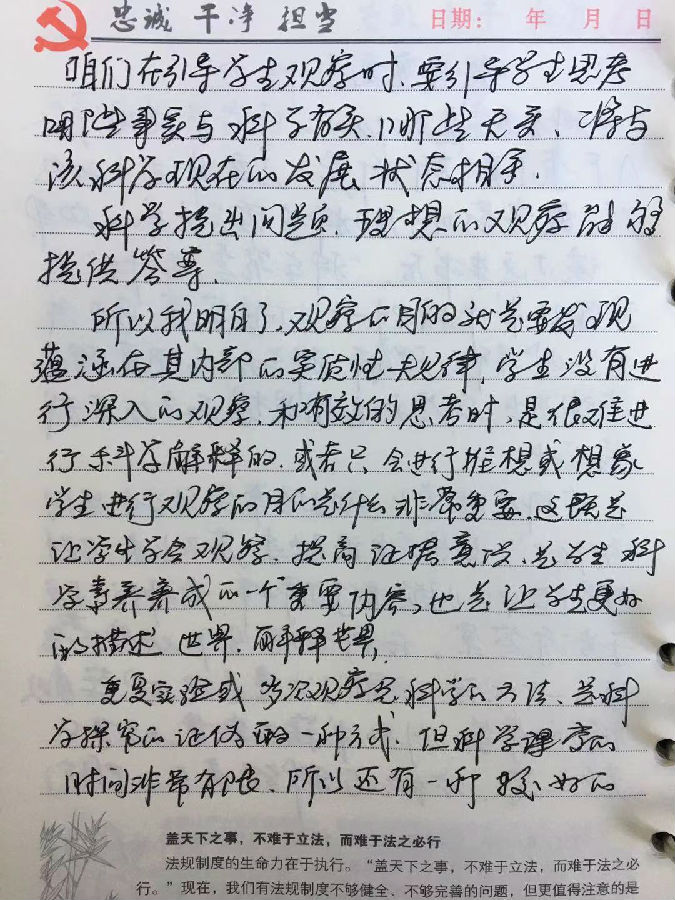 忠诚 干净 担当
日期： 年 月 日
咱们在引导学生观察时，要引导学生思考
哪些事实与科学有关，哪些无关、准与
该科学现在的发展状态相争．
科学提出问题，理想的观察能够
提供答案．
所以我明白了，观察的目的就是要发现
蕴涵在其内部的实质性规律，学生没有进
行深入的观察，和有效的思考时，是很难进
行科学解释的．或者只会进行推想或想象
学生进行观察的目的是什么非常重要．这既是
让学生学会观察．提高证据意识、是学生科
学素养养成的一个重要内容，也是让学生更好
的描述世界．解释世界．
重复实验或多次观察是科学的方法、是科
学探究的证伪的一种方式．但科学课堂的
时间非常有限、所以还有一种较好的
盖天下之事，不难于立法，而难于法之必行
法规制度的生命力在于执行。“盖天下之事，不难于立法，而难于法之必
行。”现在，我们有法规制度不够健全、不够完善的问题，但更值得注意的是